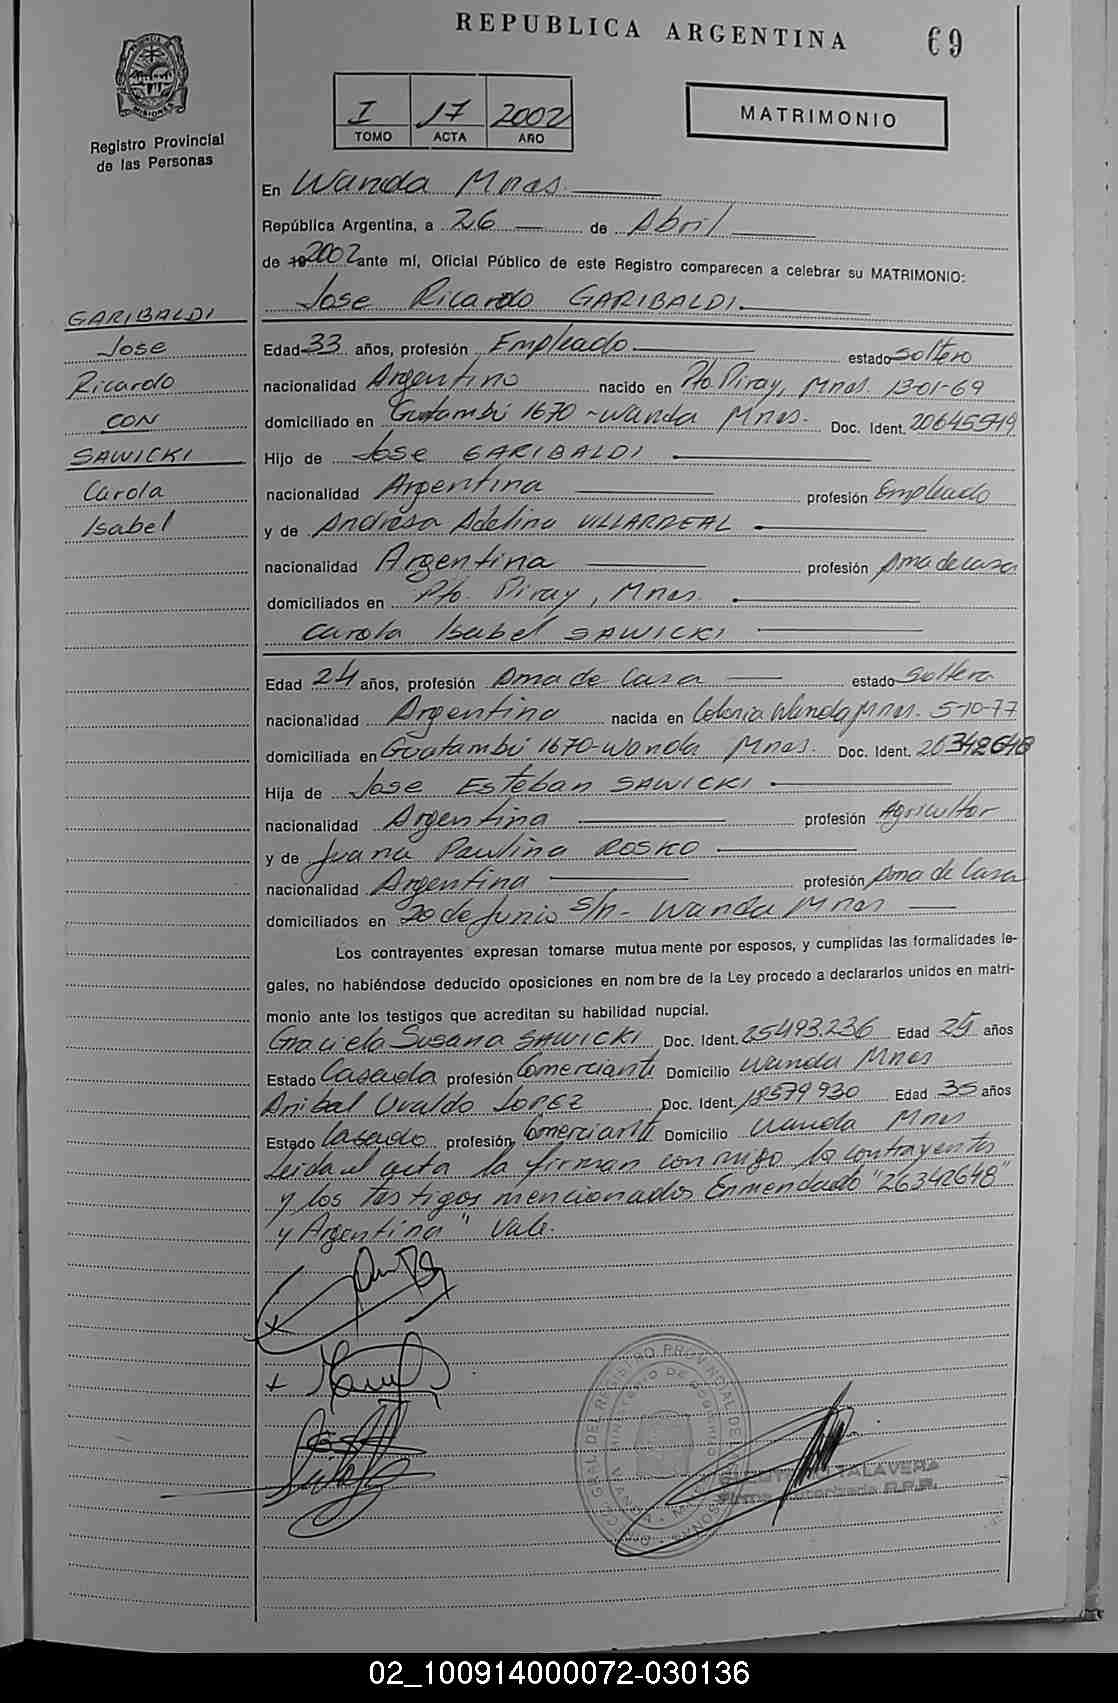 REPUBLICA ARGENTINA
69
PROVINCIA
MISIONES
Registro Provincial
de las Personas
I 17 2002
TOMO ACTA AÑO
MATRIMONIO
En Wanda Mnes.
República Argentina, a 26 de Abril
de 19 2002 ante mí, Oficial Público de este Registro comparecen a celebrar su MATRIMONIO:
Jose Ricardo GARIBALDI
GARIBALDI
Jose
Ricardo
CON
SAWICKI
Carola
Isabel
Edad 33 años, profesión Empleado estado soltero
nacionalidad Argentino nacido en Pto. Piray, Mnes. 13-01-69
domiciliado en Guatambú 1670 - Wanda Mnes. Doc. Ident. 20645549
Hijo de Jose GARIBALDI
nacionalidad Argentina profesión Empleado
y de Andresa Adelina VILLARREAL
nacionalidad Argentina profesión Ama de casa
domiciliados en Pto. Piray, Mnes.
Carola Isabel SAWICKI
Edad 24 años, profesión Ama de Casa estado Soltera
nacionalidad Argentina nacida en Colonia Wanda Mnes. 5-10-77
domiciliada en Guatambú 1670-Wanda Mnes. Doc. Ident. 26342648
Hija de Jose Esteban SAWICKI
nacionalidad Argentina profesión Agricultor
y de Juana Paulina ROSKO
nacionalidad Argentina profesión Ama de Casa
domiciliados en 20 de Junio S/n - Wanda Mnes
Los contrayentes expresan tomarse mutua mente por esposos, y cumplidas las formalidades le-
gales, no habiéndose deducido oposiciones en nom bre de la Ley procedo a declararlos unidos en matri-
monio ante los testigos que acreditan su habilidad nupcial.
Graciela Susana SAWICKI Doc. Ident. 25493.236 Edad 25 años
Estado Casada profesión Comerciante Domicilio Wanda Mnes
Anibal Uvaldo LOPEZ Doc. Ident. 18579930 Edad 35 años
Estado Casado profesión Comerciante Domicilio Wanda Mnes
Leida el acta la firman con migo los contrayentes
y los testigos mencionados Enmendado "26342648"
y Argentina" Vale.
TALAVERA
Firma Autorizada R.P.P.
02_100914000072-030136